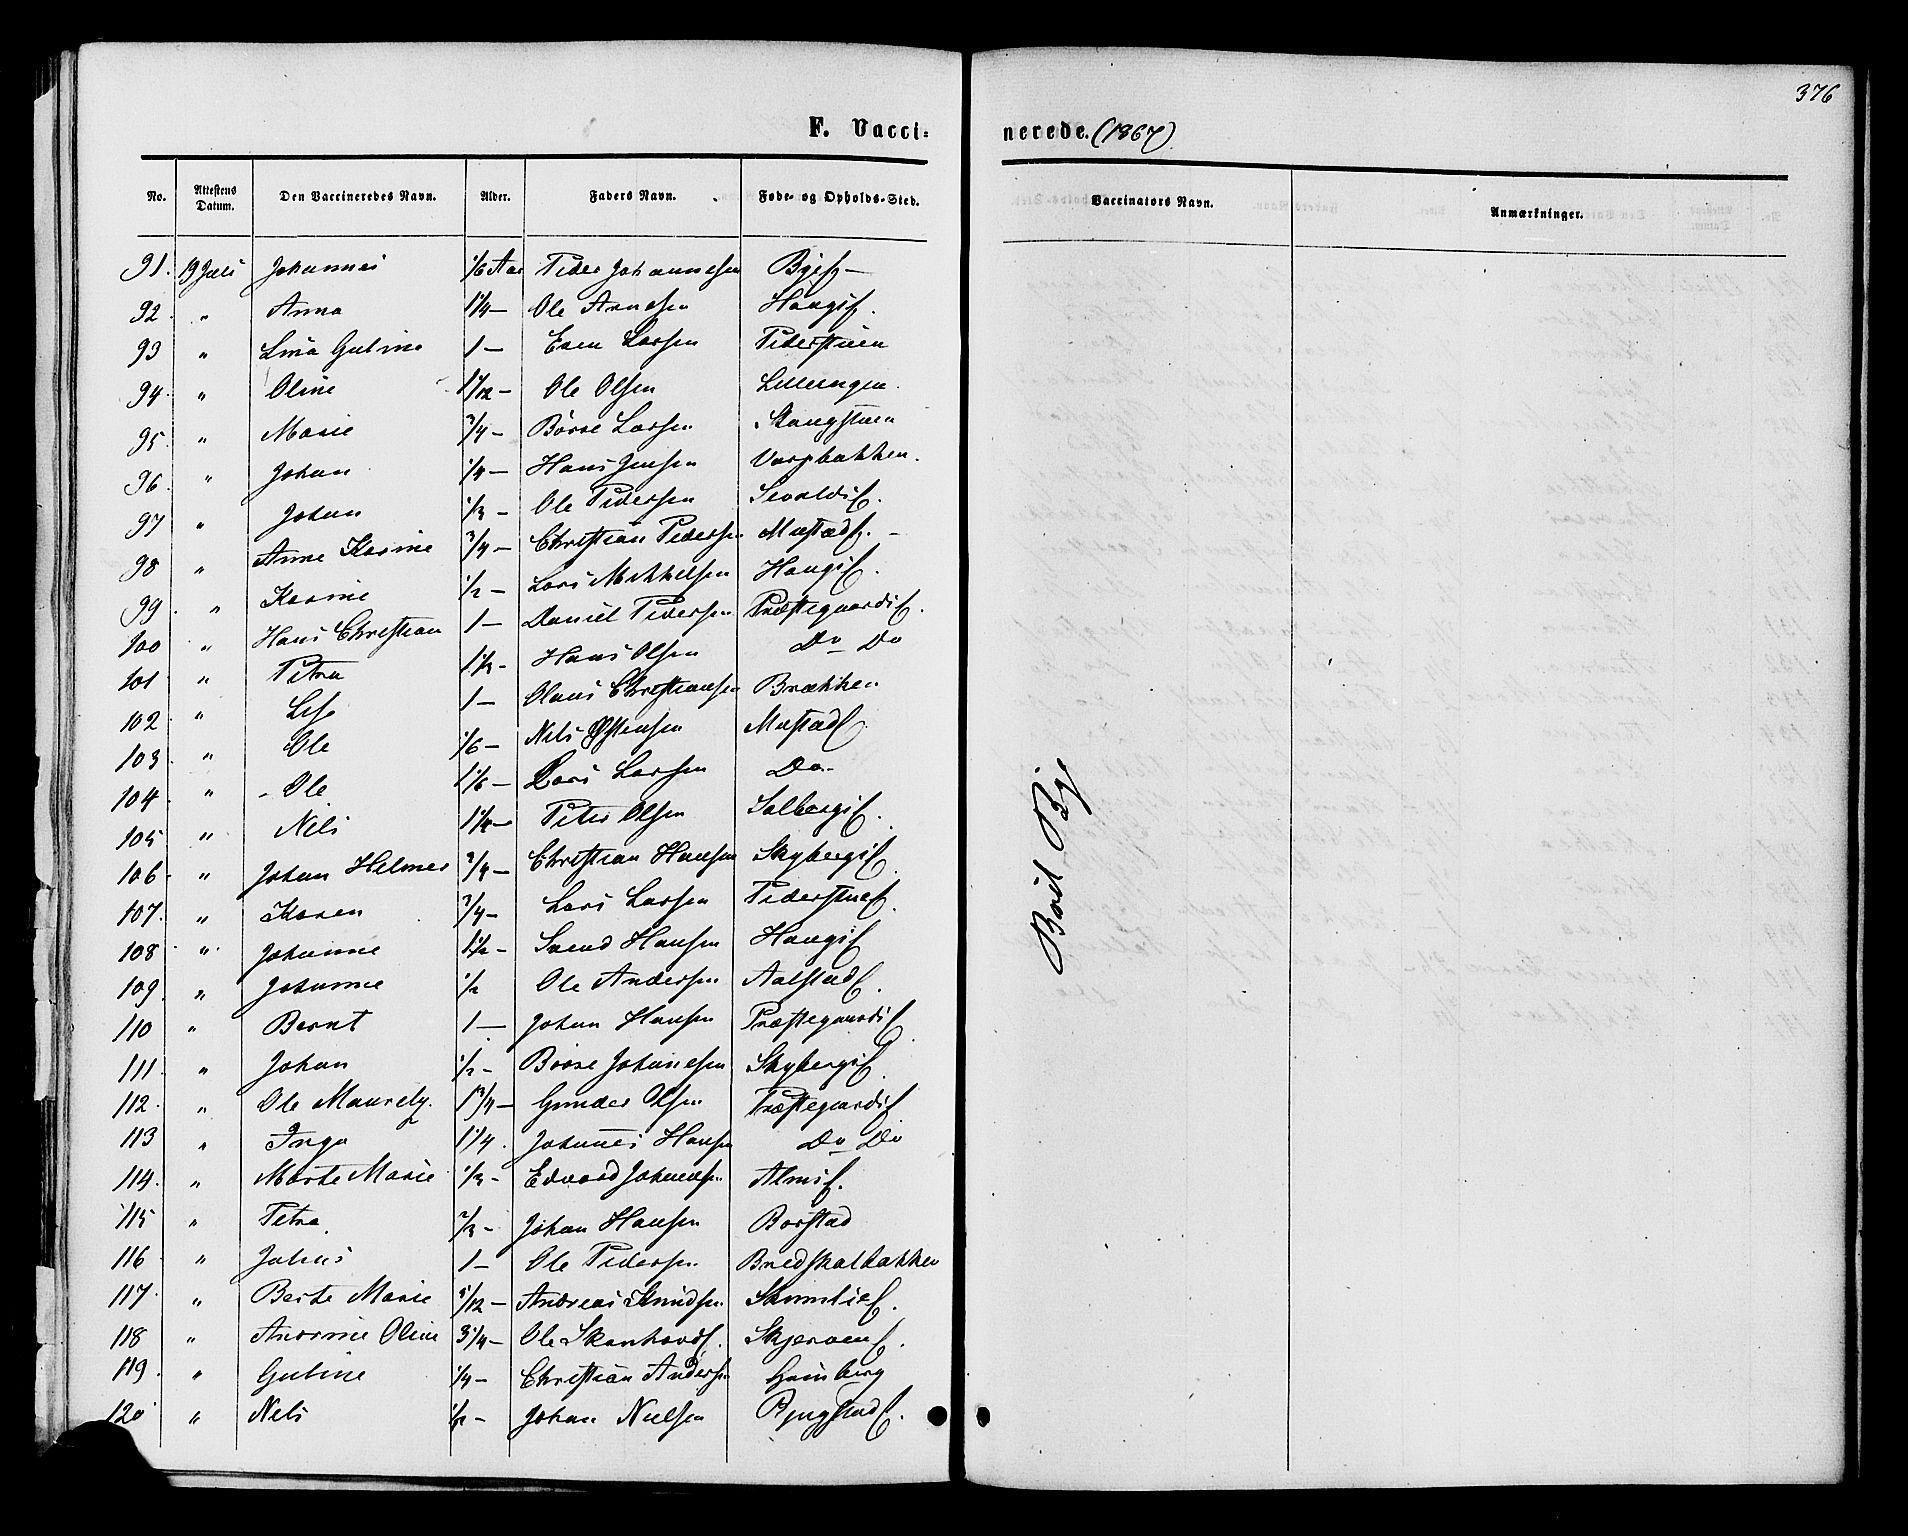 376
F. Vaccinerede. (1867)
No. | Attestens Datum. | Den Vaccineredes Navn. | Alder. | Faders Navn. | Føde- og Opholds-Sted. | Vaccinators Navn. | Anmærkninger.
91. 19 Juli Johannes 1/6 Aar Peder Johannesen Byesf –
92 " Anna 1 1/4 – Ole Arnesen Haugsf.
93 " Lina Gubine 1 – Even Larsen Pederstuen
94. " Oline 1 1/12 – Ole Olsen Lilleengen.
95 " Marie 3/4 – Børre Larsen Stangstuen
96. " Johan 1/4 – Hans Jensen Varpbakken.
97 " Johan 1/3 – Ole Pedersen Sevaldsf.
98 " Anne Karine 3/4 – Christian Pedersen Mustadf. –
99 . " Karine 1/2 – Lars Mikkelsen Haugsf.
100 " Hans Christian 1 – Daniel Pedersen Præstegaardsf.
101 " Petra 1 1/2 – Hans Olsen Do – Do
102 " Lise 1 – Olaus Christiansen Brækken
103 " Ole 1/6 – Nils Østensen Mustadf.
104 " Ole 1 1/6 – Lars Larsen Do –
105 " Nils Peter Olsen Solbergsf.
106 " Johan Helmer 3/4 – Christian Hansen Skybergsf.
107. " Karen 3/4 – Lars Larsen Pederstuef.
108 " Johanne 1 1/2 – Svend Hansen Haugsf
109 " Johanne 1/2 Ole Andersen Aalstadf.
110 " Bernt 1 – Johan Hansen Præstegaardsf.
111 " Johan 1/2 – Børre Johannesen Skybergsf.
112 " Ole Mauritz. 1 3/4 – Gunder Olsen Præstegaardsf
113 " Inga 1 1/4 . Johannes Hansen Do – Do
114. " Marte Marie 1/3 – Edvard Johannesen Almsf.
115 " Petra. 2/3 – Johan Hansen Borstad
116 " Julius 1 – Ole Pedersen Bredskalbakken
117. " Berte Marie 5/12 – Andreas Knudsen
118 " Andrine Oline 3 1/4 – Ole Skjervenf.
119 . " Gubine 1/4 – Christian Andersen
120 " Nils 1/2 – Johan Nielsen
Boel Bye